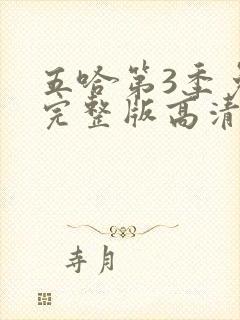 五哈第3季
完整版高清
寺月